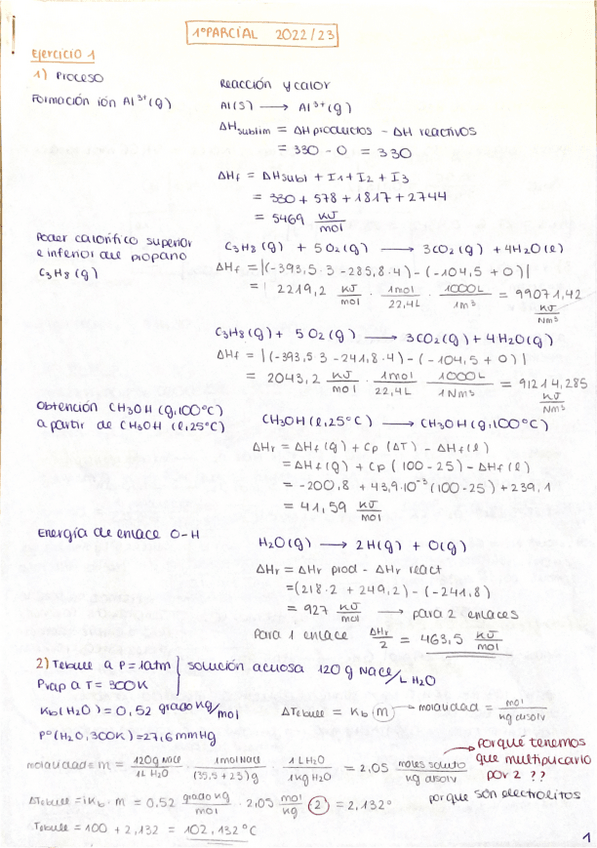 1º PARCIAL 2022/23
Ejercicio 1
1) Proceso
Reacción y calor
Formación ión Al³⁺(g)
Al(s) ⟶ Al³⁺(g)
ΔHsublim = ΔH productos - ΔH reactivos
= 330 - 0 = 330
ΔHf = ΔHsubl + I1 + I2 + I3
= 330 + 578 + 1817 + 2744
= 5469 KJ/mol
Poder calorífico superior
e inferior del propano
C3H8(g)
C3H8(g) + 5O2(g) ⟶ 3CO2(g) + 4H2O(l)
ΔHf = |(-393,5·3 -285,8·4) - (-104,5 + 0)|
= 2219,2 KJ/mol · 1mol/22,4L · 1000L/1m³ = 99071,42 KJ/Nm³
C3H8(g) + 5O2(g) ⟶ 3CO2(g) + 4H2O(g)
ΔHf = |(-393,5 3 -241,8·4) - (-104,5 + 0)|
= 2043,2 KJ/mol · 1mol/22,4L 1000L/1Nm³ = 91214,285 KJ/Nm³
Obtención CH3OH (g,100ºC)
a partir de CH3OH (l,25ºC)
CH3OH(l,25ºC) ⟶ CH3OH(g,100ºC)
ΔHr = ΔHf(g) + Cp(ΔT) - ΔHf(l)
= ΔHf(g) + Cp(100-25) - ΔHf(l)
= -200,8 + 43,9·10⁻³(100-25) + 239,1
= 41,59 KJ/mol
Energía de enlace O-H
H2O(g) ⟶ 2H(g) + O(g)
ΔHr = ΔHr prod - ΔHr react
= (218·2 + 249,2) - (-241,8)
= 927 KJ/mol ⟶ para 2 enlaces
Para 1 enlace ΔHr/2 = 463,5 KJ/mol
2) Tebull a P=1atm
Pvap a T=300K
solución acuosa 120 g NaCl/L H2O
Kb(H2O) = 0,52 grado kg/mol
ΔTebull = Kb m → molalidad = mol/kg disolv
Pº(H2O,300K) = 27,6 mmHg
molalidad = m = 120g NaCl/1L H2O · 1mol NaCl/(35,5+23)g · 1L H2O/1kg H2O = 2,05 moles soluto/kg disolv
→ porqué tenemos
que multiplicarlo
por 2 ??
porque son electrolitos
ΔTebull = i Kb · m = 0,52 grado kg/mol · 2,05 mol/kg · 2 = 2,132º
Tebull = 100 + 2,132 = 102,132ºC
1